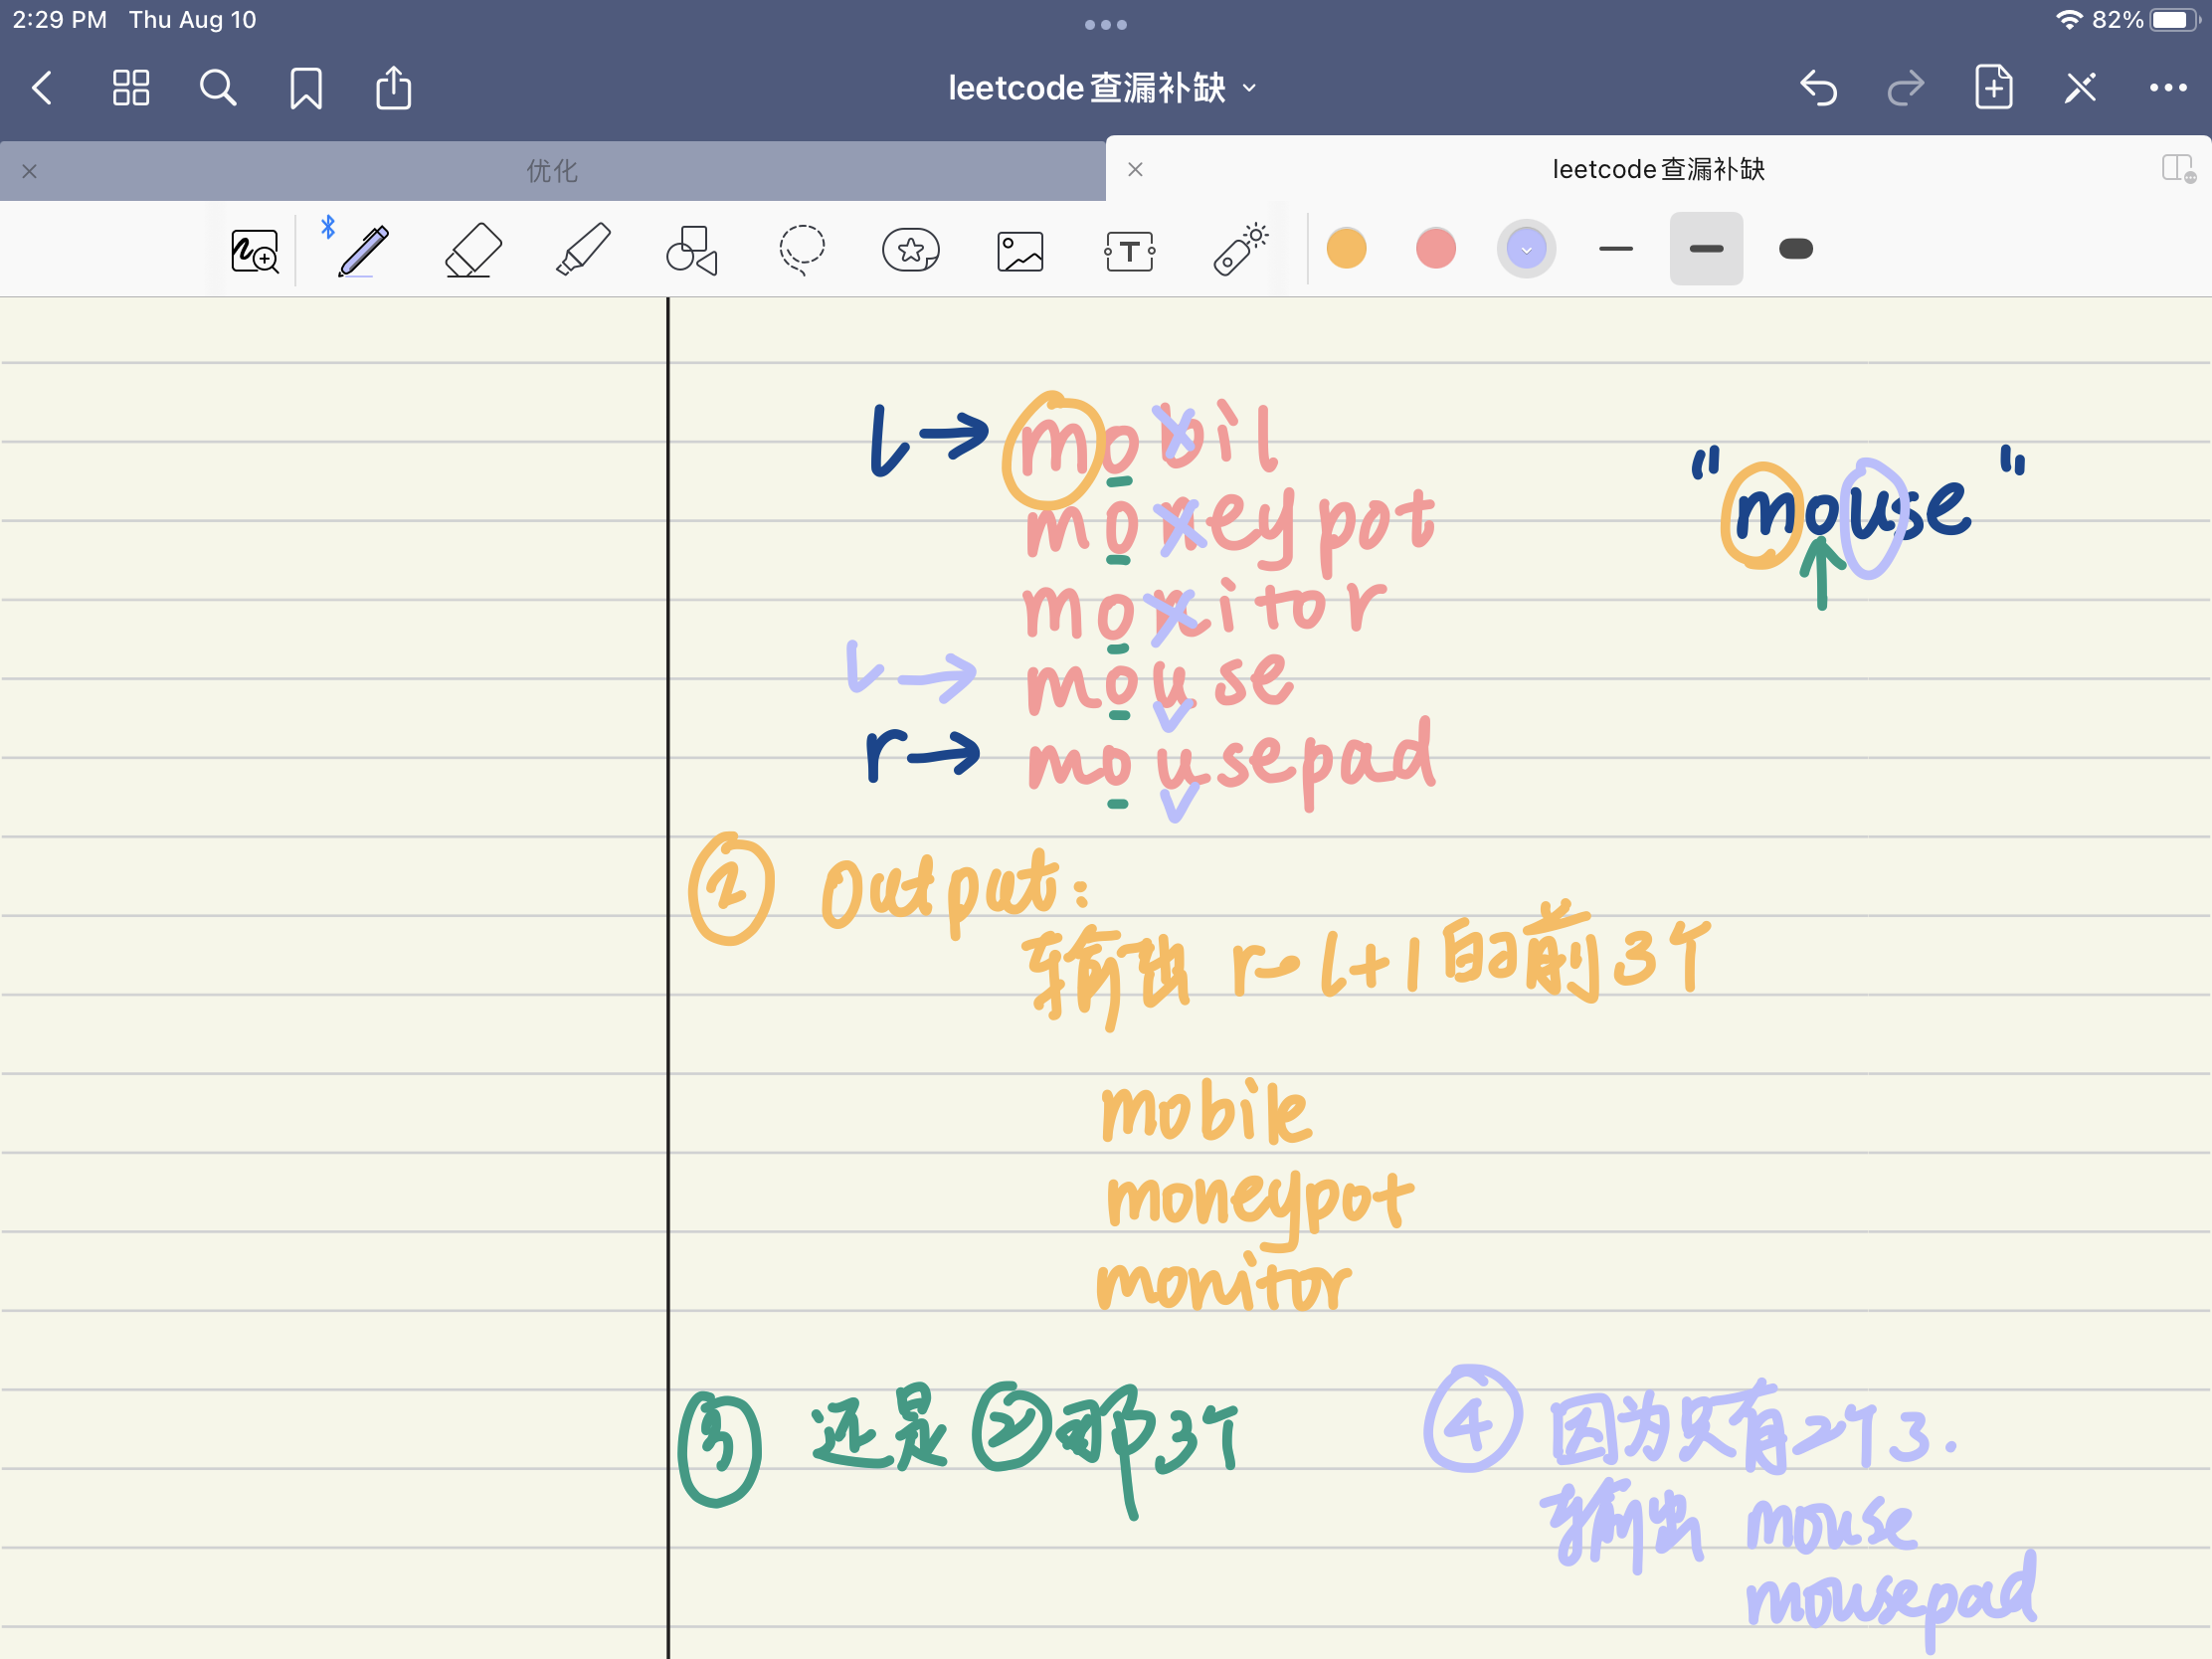 2:29 PM Thu Aug 10
82%
leetcode查漏补缺
优化
leetcode查漏补缺
T
l → mobil
"mouse"
moneypot
monitor
l → mouse
r → mousepad
② Output:
输出 r-l+1的前3个
mobile
moneypot
monitor
③ 还是②那3个
④ 因为只有2个3.
输出 mouse
mousepad